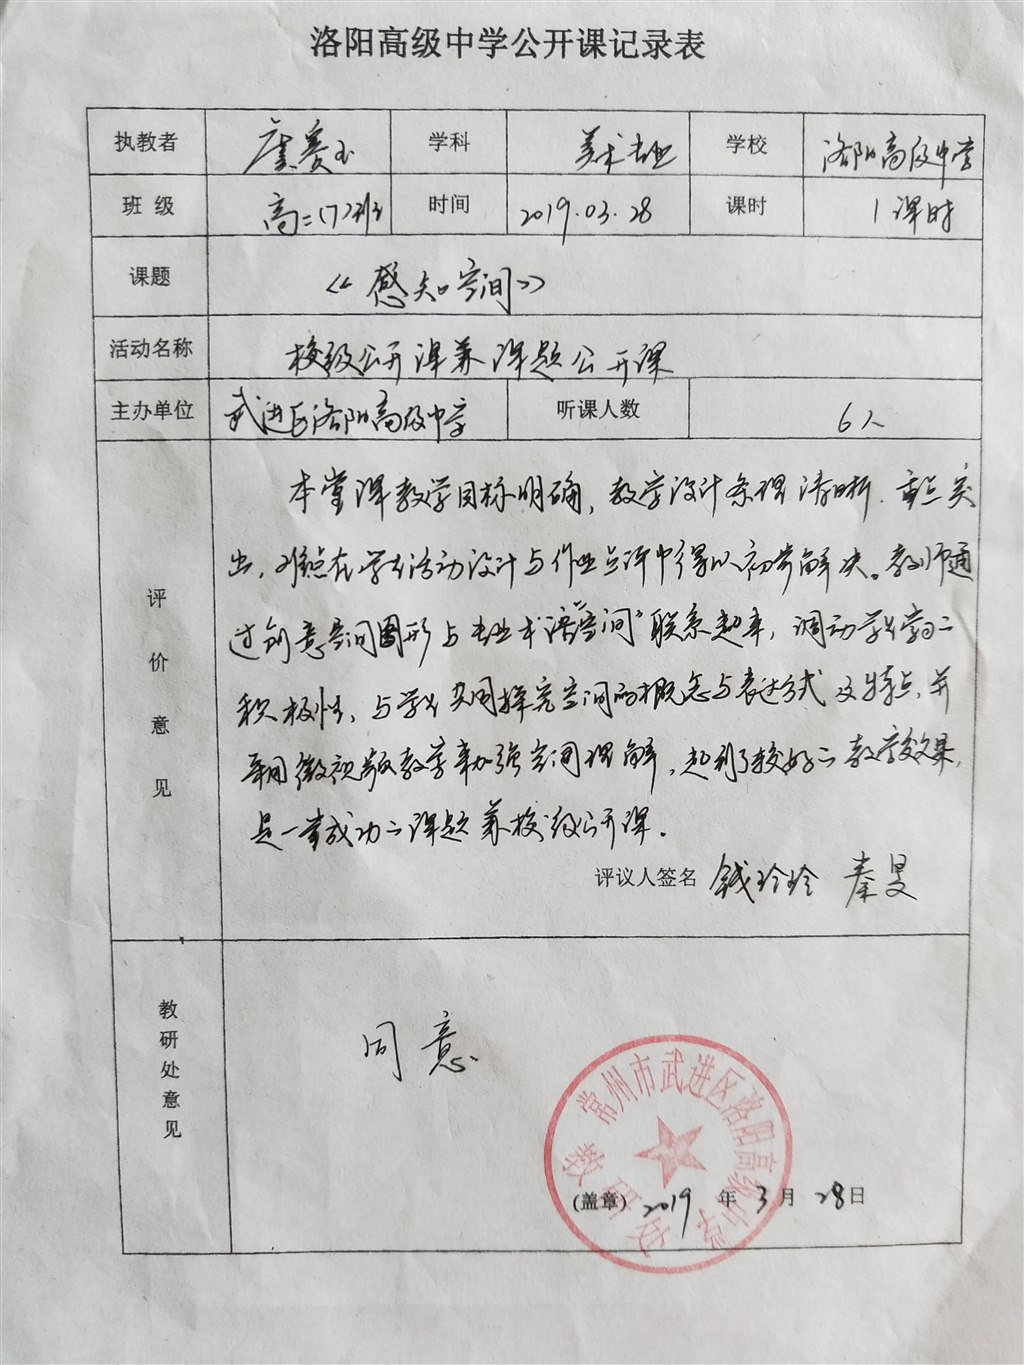 洛阳高级中学公开课记录表
执教者 虞赛玉 学科 美术专业 学校 洛阳高级中学
班 级 高二(7)班 时间 2019.03.28 课时 1课时
课题 《感知空间》
活动名称 校级公开课兼课题公开课
主办单位 武进区洛阳高级中学 听课人数 6人
评价意见
本堂课教学目标明确，教学设计条理清晰．重点突
出，难点在学生活动设计与作业点评中得以初步解决。教师通
过创意空间图形与专业术语"空间"联系起来，调动学生学习二
积极性，与学生共同探究空间的概念与表达方式及特点，并
利用微视频教学来加强空间理解，起到了较好二教学效果，
是一堂成功二课题兼校级公开课．
评议人签名 钱玲玲 秦旻
教研处意见
同意
常州市武进区洛阳高级中学
教研处
(盖章) 2019 年 3 月 28 日